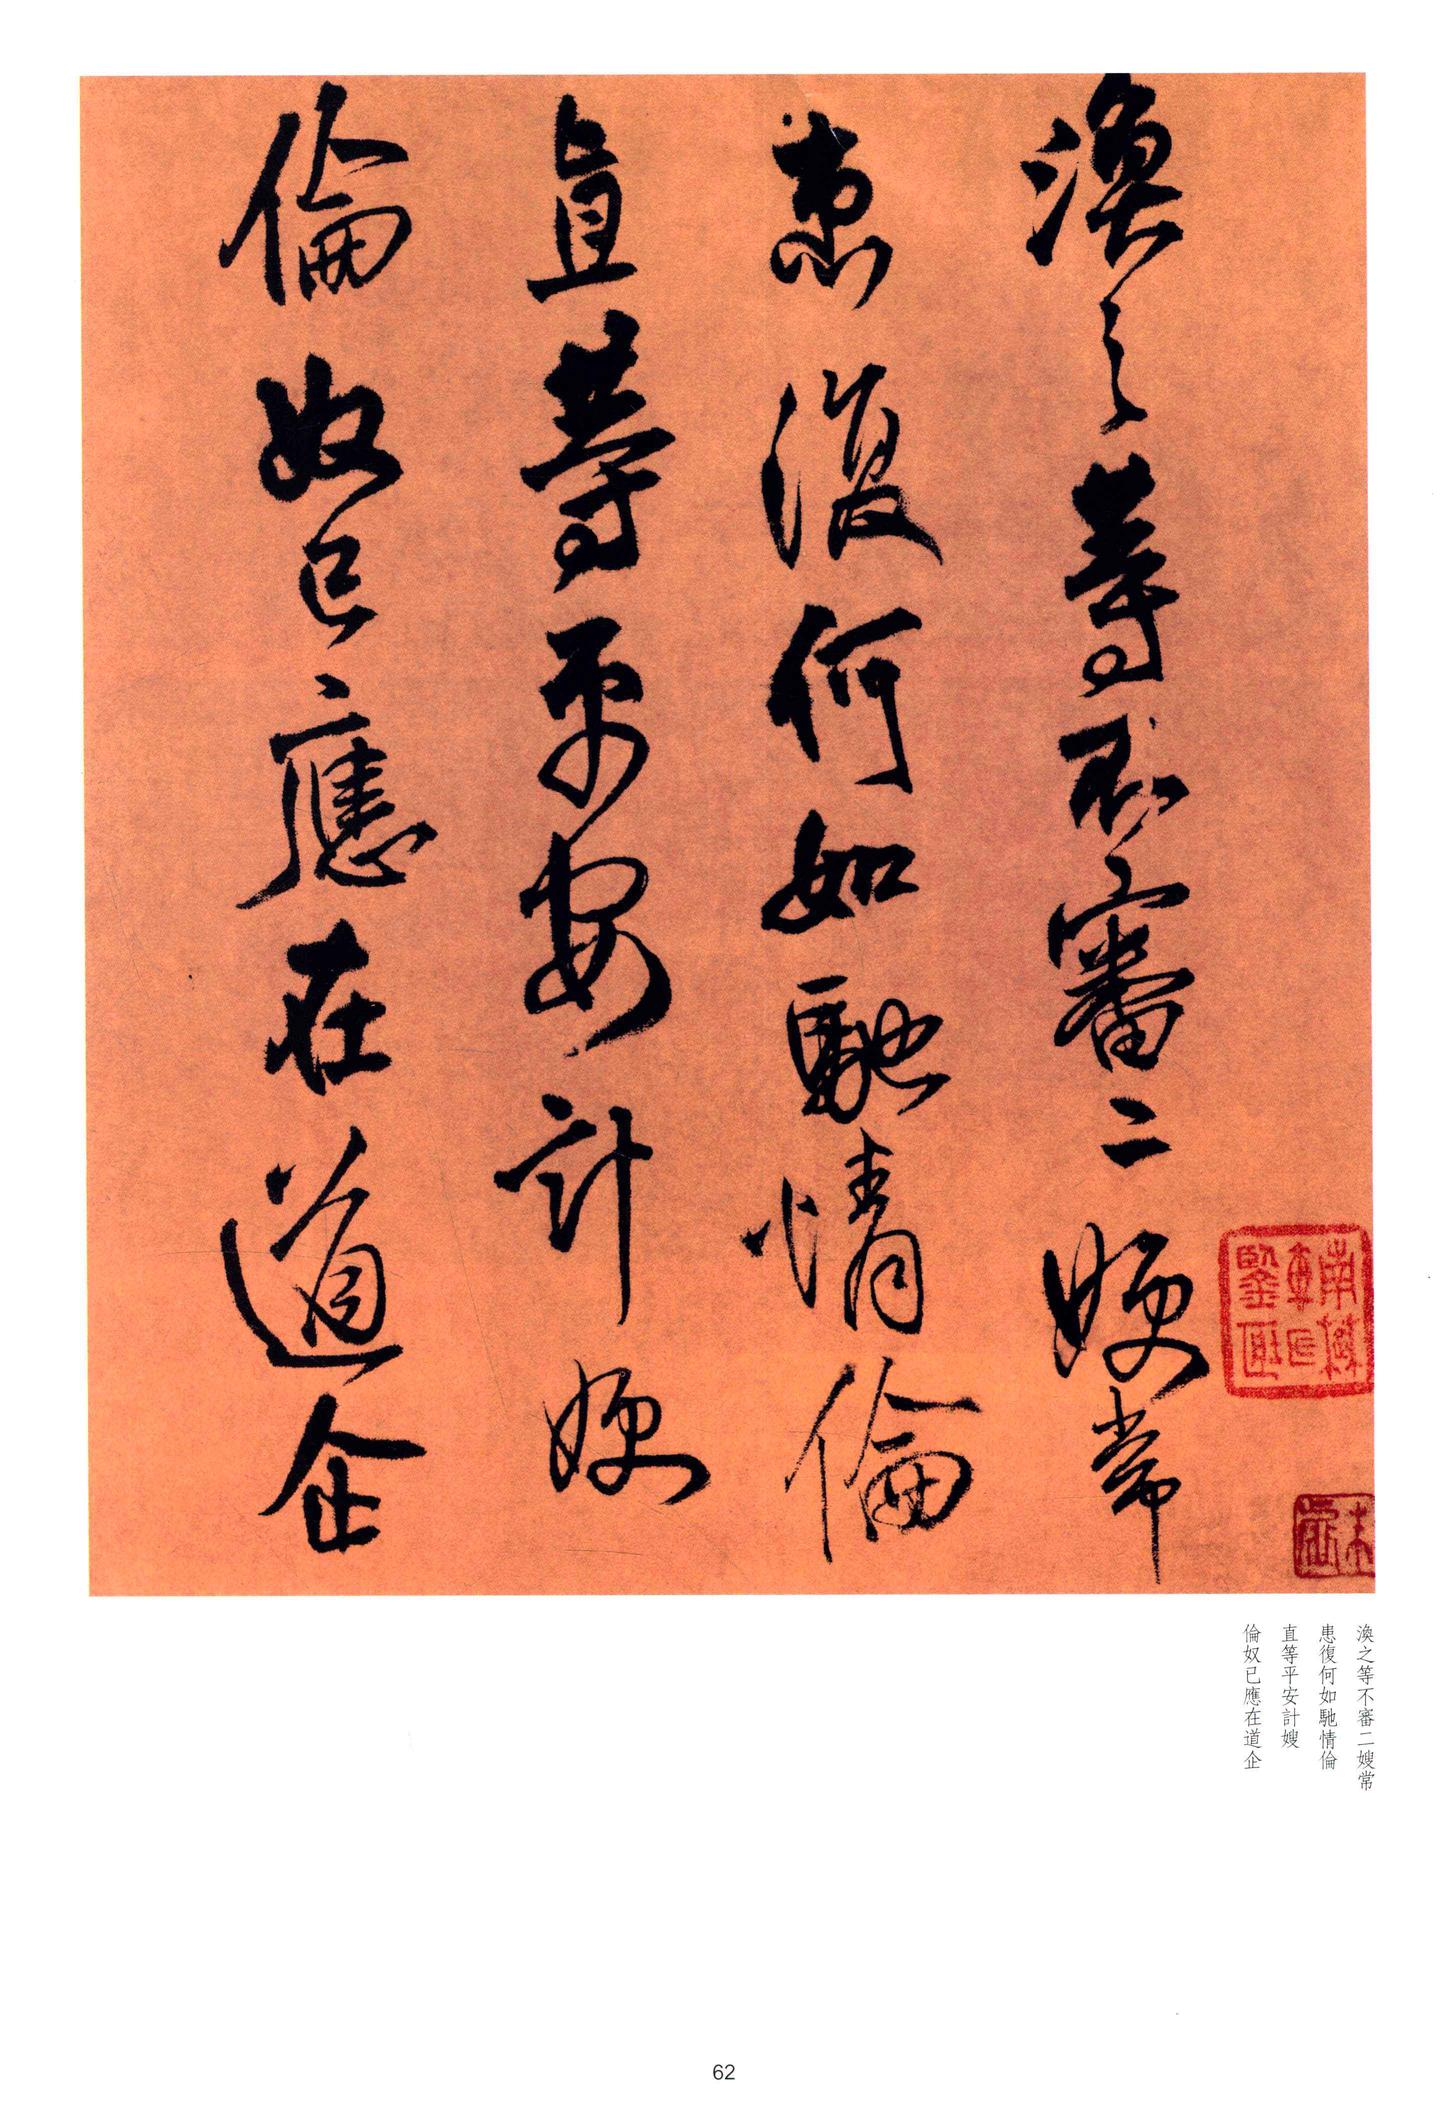 渙之等不審二嫂常
患復何如馳情倫
直等平安計嫂
倫奴已應在道企
渙之等不審二嫂常
患復何如馳情倫
直等平安計嫂
倫奴已應在道企
62